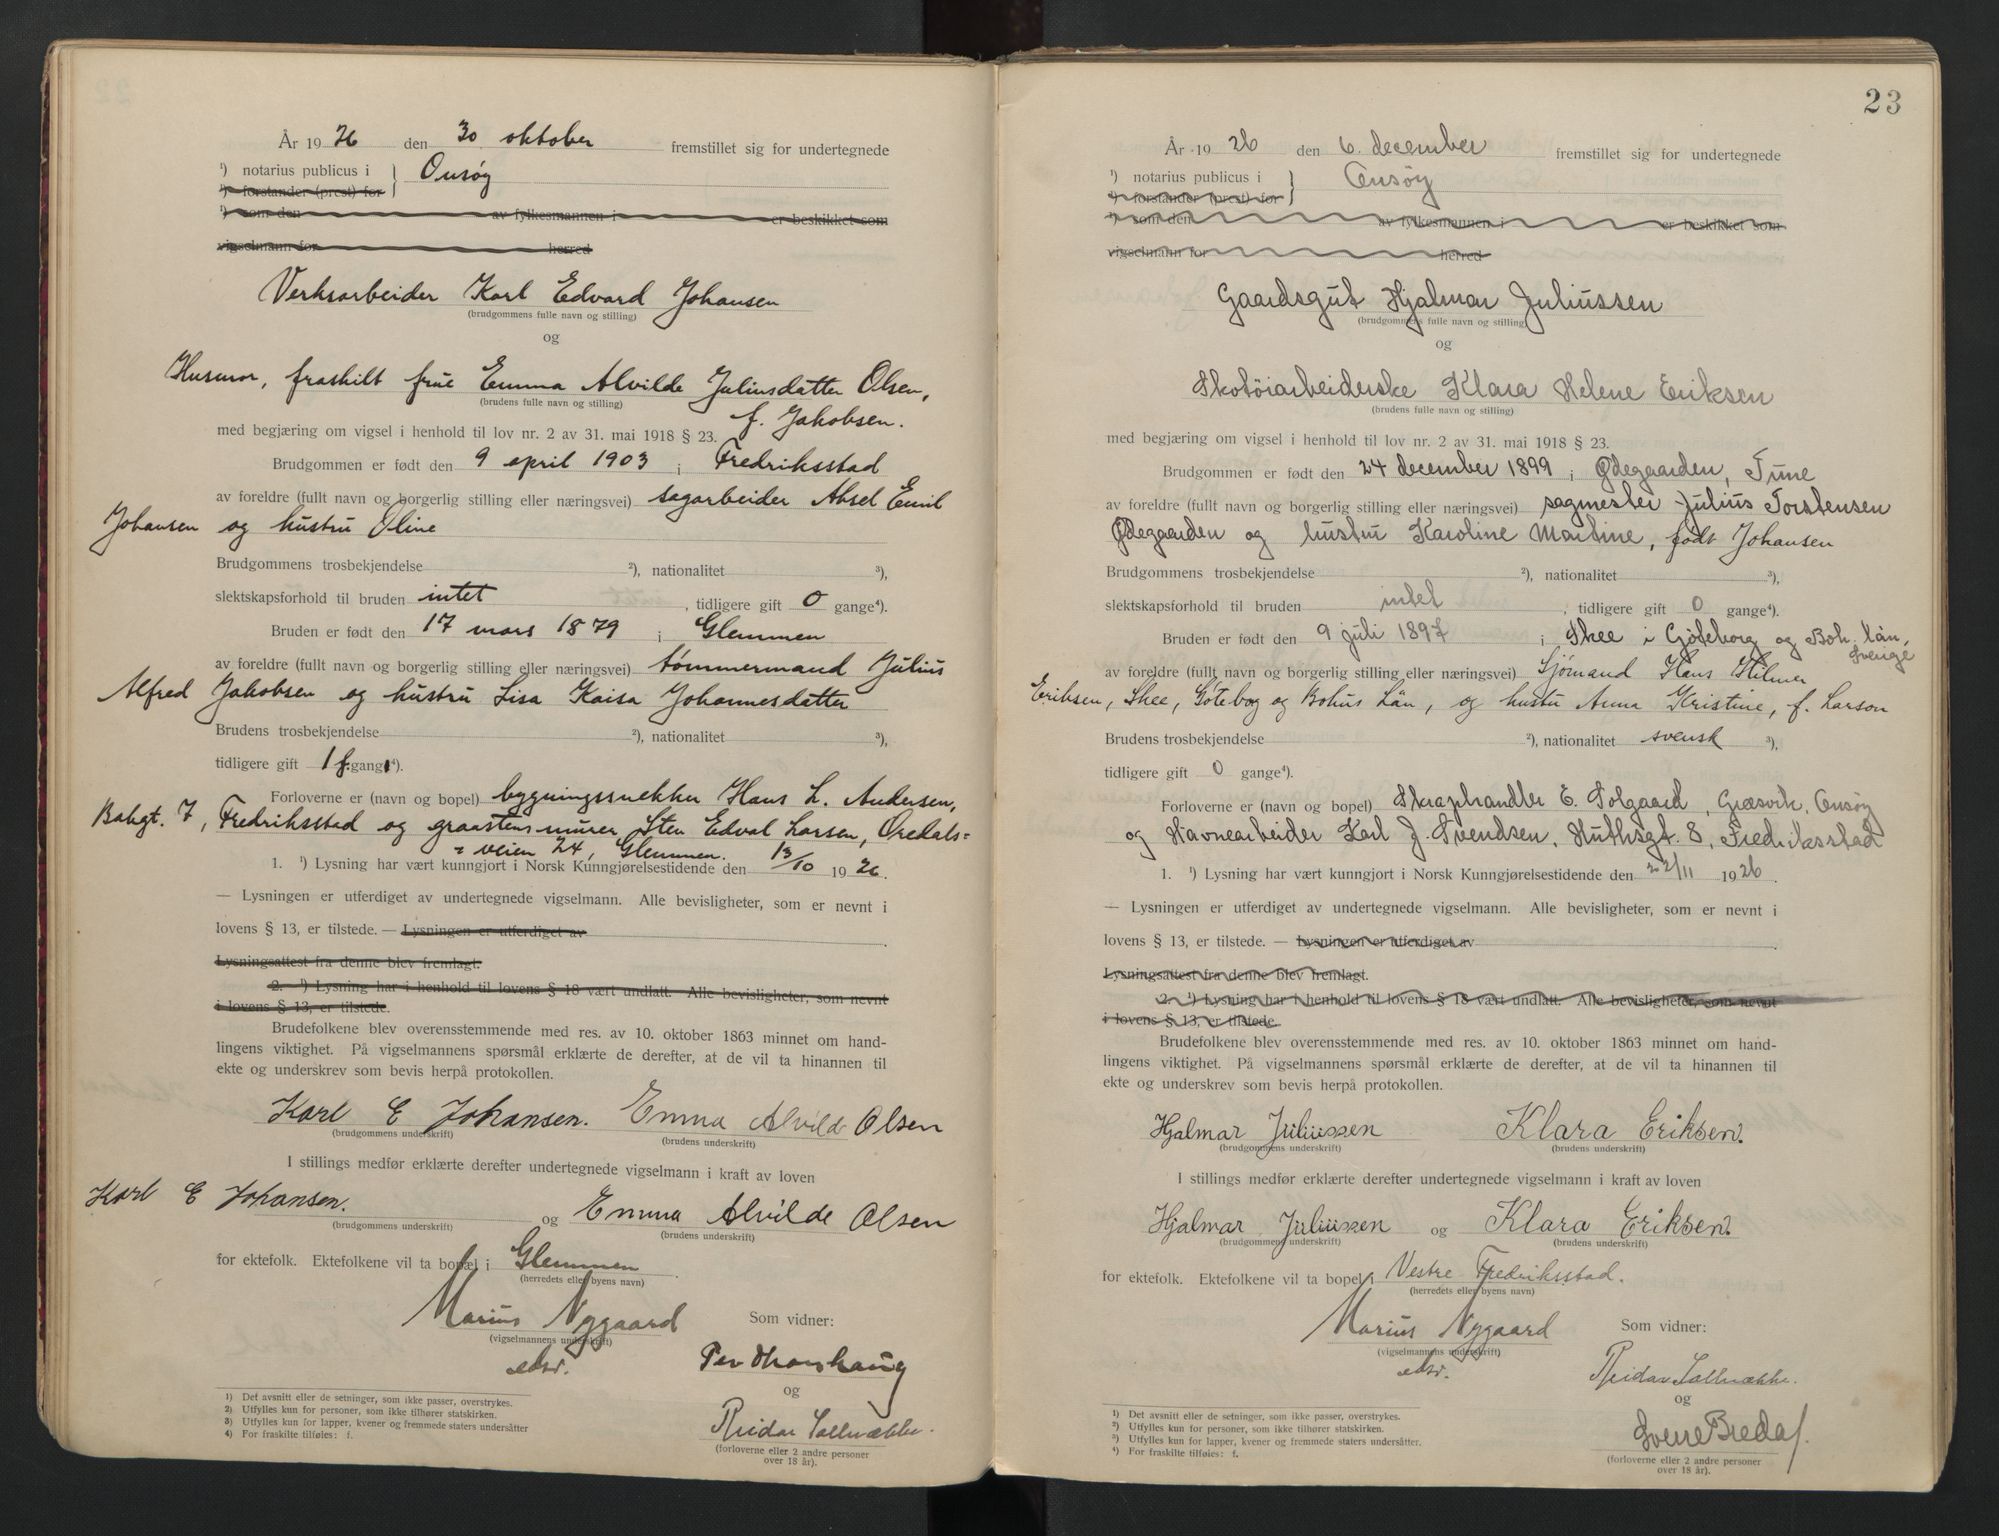 År 1926 den 30 oktober fremstillet sig for undertegnede
¹) notarius publicus i } Onsøy
¹) forstander (prest) for
¹) som den av fylkesmannen i er beskikket som
vigselmann for herred
Verksarbeider Karl Edvard Johansen
(brudgommens fulle navn og stilling)
og
Husmor, fraskilt frue Emma Alvilde Juliusdatter Olsen,
(brudens fulle navn og stilling)
f. Jakobsen.
med begjæring om vigsel i henhold til lov nr. 2 av 31. mai 1918 § 23.
Brudgommen er født den 9 april 1903 i Fredriksstad
av foreldre (fullt navn og borgerlig stilling eller næringsvei) sagarbeider Aksel Emil
Johansen og hustru Oline
Brudgommens trosbekjendelse ²), nationalitet ³),
slektskapsforhold til bruden intet, tidligere gift 0 gange⁴).
Bruden er født den 17 mars 1879 i Glemmen
av foreldre (fullt navn og borgerlig stilling eller næringsvei) tømmermand Julius
Alfred Jakobsen og hustru Lisa Kaisa Johannesdatter
Brudens trosbekjendelse ²), nationalitet ³),
tidligere gift 1 f. gang⁴).
Forloverne er (navn og bopel) bygningssnekker Hans L. Andersen,
Bakgt. 7, Fredriksstad og graastensmurer Sten Edval Larsen, Oredals=
= veien 24, Glemmen.
1. ¹) Lysning har vært kunngjort i Norsk Kunngjørelsestidende den 13/10 1926.
— Lysningen er utferdiget av undertegnede vigselmann. Alle bevisligheter, som er nevnt i
lovens § 13, er tilstede. — Lysningen er utferdiget av
Lysningsattest fra denne blev fremlagt.
2. ¹) Lysning har i henhold til lovens § 18 vært undlatt. Alle bevisligheter, som nevnt
i lovens § 13, er tilstede.
Brudefolkene blev overensstemmende med res. av 10. oktober 1863 minnet om hand-
lingens viktighet. På vigselmannens spørsmål erklærte de derefter, at de vil ta hinannen til
ekte og underskrev som bevis herpå protokollen.
Karl E Johansen. Emma Alvilde Olsen
(brudgommens underskrift) (brudens underskrift)
I stillings medfør erklærte derefter undertegnede vigselmann i kraft av loven
Karl E Johansen. og Emma Alvilde Olsen
(brudgommens underskrift) (brudens underskrift)
for ektefolk. Ektefolkene vil ta bopæl i Glemmen.
(herredets eller byens navn)
Marius Nygaard Som vidner:
(vigselmannens underskrift)
edsv. Per Thorshaug
og
Reidar Solbrække.
(forloverne eller 2 andre personer
over 18 år).
¹) Det avsnitt eller de setninger, som ikke passer, overstrykes.
²) Utfylles kun for personer, som ikke tilhører statskirken.
³) Utfylles kun for lapper, kvener og fremmede staters undersåtter
⁴) For fraskilte tilføies: f.
23
År 1926 den 6. december fremstillet sig for undertegnede
¹) notarius publicus i } Onsøy
¹) forstander (prest) for
¹) som den av fylkesmannen i er beskikket som
vigselmann for herred
Gaardsgut Hjalmar Juliussen
(brudgommens fulle navn og stilling)
og
Skotøiarbeiderske Klara Helene Eriksen
(brudens fulle navn og stilling)
med begjæring om vigsel i henhold til lov nr. 2 av 31. mai 1918 § 23.
Brudgommen er født den 24 december 1899 i Ødegaarden, Tune
av foreldre (fullt navn og borgerlig stilling eller næringsvei) sagmester Julius Torstensen
Ødegaarden og hustru Karoline Martine, født Johansen
Brudgommens trosbekjendelse ²), nationalitet ³),
slektskapsforhold til bruden intet, tidligere gift 0 gange⁴).
Bruden er født den 9 juli 1897 i Skee i Göteborg og Boh. län,
Sverige
av foreldre (fullt navn og borgerlig stilling eller næringsvei) Sjömand Hans Hilmer
Eriksen, Skee, Göteborg og Bohus Län, og hustru Anna Kristine, f. Larson
Brudens trosbekjendelse ²), nationalitet svensk ³),
tidligere gift 0 gange⁴).
Forloverne er (navn og bopel) Skraphandler E. Solgaard, Græsvik, Onsøy
og Havnearbeider Karl J. Svendsen, Huthsgt. 8, Fredriksstad
1. ¹) Lysning har vært kunngjort i Norsk Kunngjørelsestidende den 22/11 1926.
— Lysningen er utferdiget av undertegnede vigselmann. Alle bevisligheter, som er nevnt i
lovens § 13, er tilstede. — Lysningen er utferdiget av
Lysningsattest fra denne blev fremlagt.
2. ¹) Lysning har i henhold til lovens § 18 vært undlatt. Alle bevisligheter, som nevnt
i lovens § 13, er tilstede.
Brudefolkene blev overensstemmende med res. av 10. oktober 1863 minnet om hand-
lingens viktighet. På vigselmannens spørsmål erklærte de derefter, at de vil ta hinannen til
ekte og underskrev som bevis herpå protokollen.
Hjalmar Juliussen Klara Eriksen.
(brudgommens underskrift) (brudens underskrift)
I stillings medfør erklærte derefter undertegnede vigselmann i kraft av loven
Hjalmar Juliussen og Klara Eriksen.
(brudgommens underskrift) (brudens underskrift)
for ektefolk. Ektefolkene vil ta bopel i Vestre Fredriksstad.
(herredets eller byens navn)
Marius Nygaard Som vidner:
(vigselmannens underskrift)
edsv. Reidar Solbrække.
og
Sverre Bredaf.
(forloverne eller 2 andre personer
over 18 år).
¹) Det avsnitt eller de setninger, som ikke passer, overstrykes.
²) Utfylles kun for personer, som ikke tilhører statskirken.
³) Utfylles kun for lapper, kvener og fremmede staters undersåtter.
⁴) For fraskilte tilføies: f.